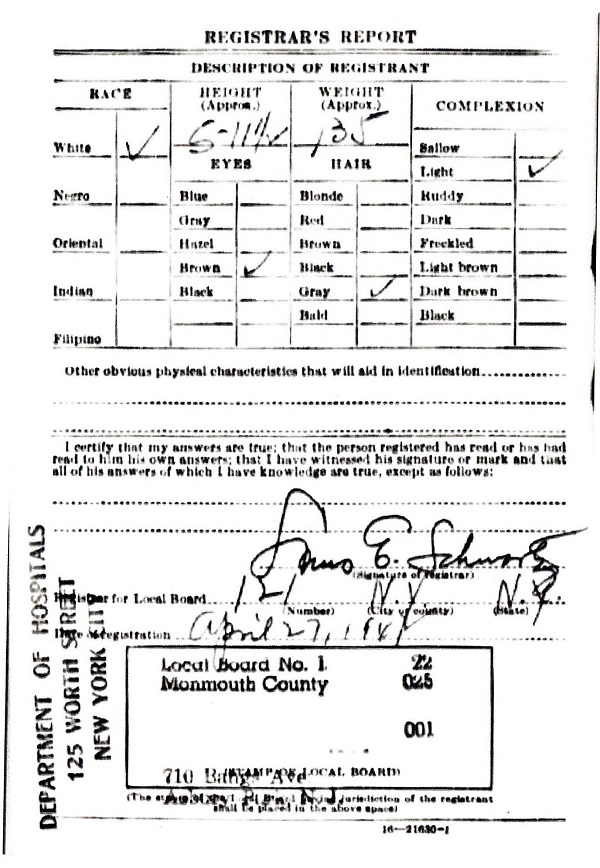 REGISTRAR'S REPORT
DESCRIPTION OF REGISTRANT
RACE
HEIGHT (Approx.)
WEIGHT (Approx.)
COMPLEXION
5-11½ 135
White ✓
EYES
HAIR
Sallow
Light ✓
Negro
Blue
Blonde
Ruddy
Gray
Red
Dark
Oriental
Hazel
Brown
Freckled
Brown ✓
Black
Light brown
Indian
Black
Gray ✓
Dark brown
Bald
Black
Filipino
Other obvious physical characteristics that will aid in identification
I certify that my answers are true; that the person registered has read or has had
read to him his own answers; that I have witnessed his signature or mark and that
all of his answers of which I have knowledge are true, except as follows:
E. Schwartz
(Signature of registrar)
Registrar for Local Board 121 N.Y. N.Y.
(Number) (City or county) (State)
Date of registration April 27, 194
DEPARTMENT OF HOSPITALS
125 WORTH STREET
NEW YORK CITY
Local Board No. 1 22
Monmouth County 025
001
710 Bangs Ave
(STAMP OF LOCAL BOARD)
(The stamp of the Local Board having jurisdiction of the registrant
shall be placed in the above space)
16—21630-1